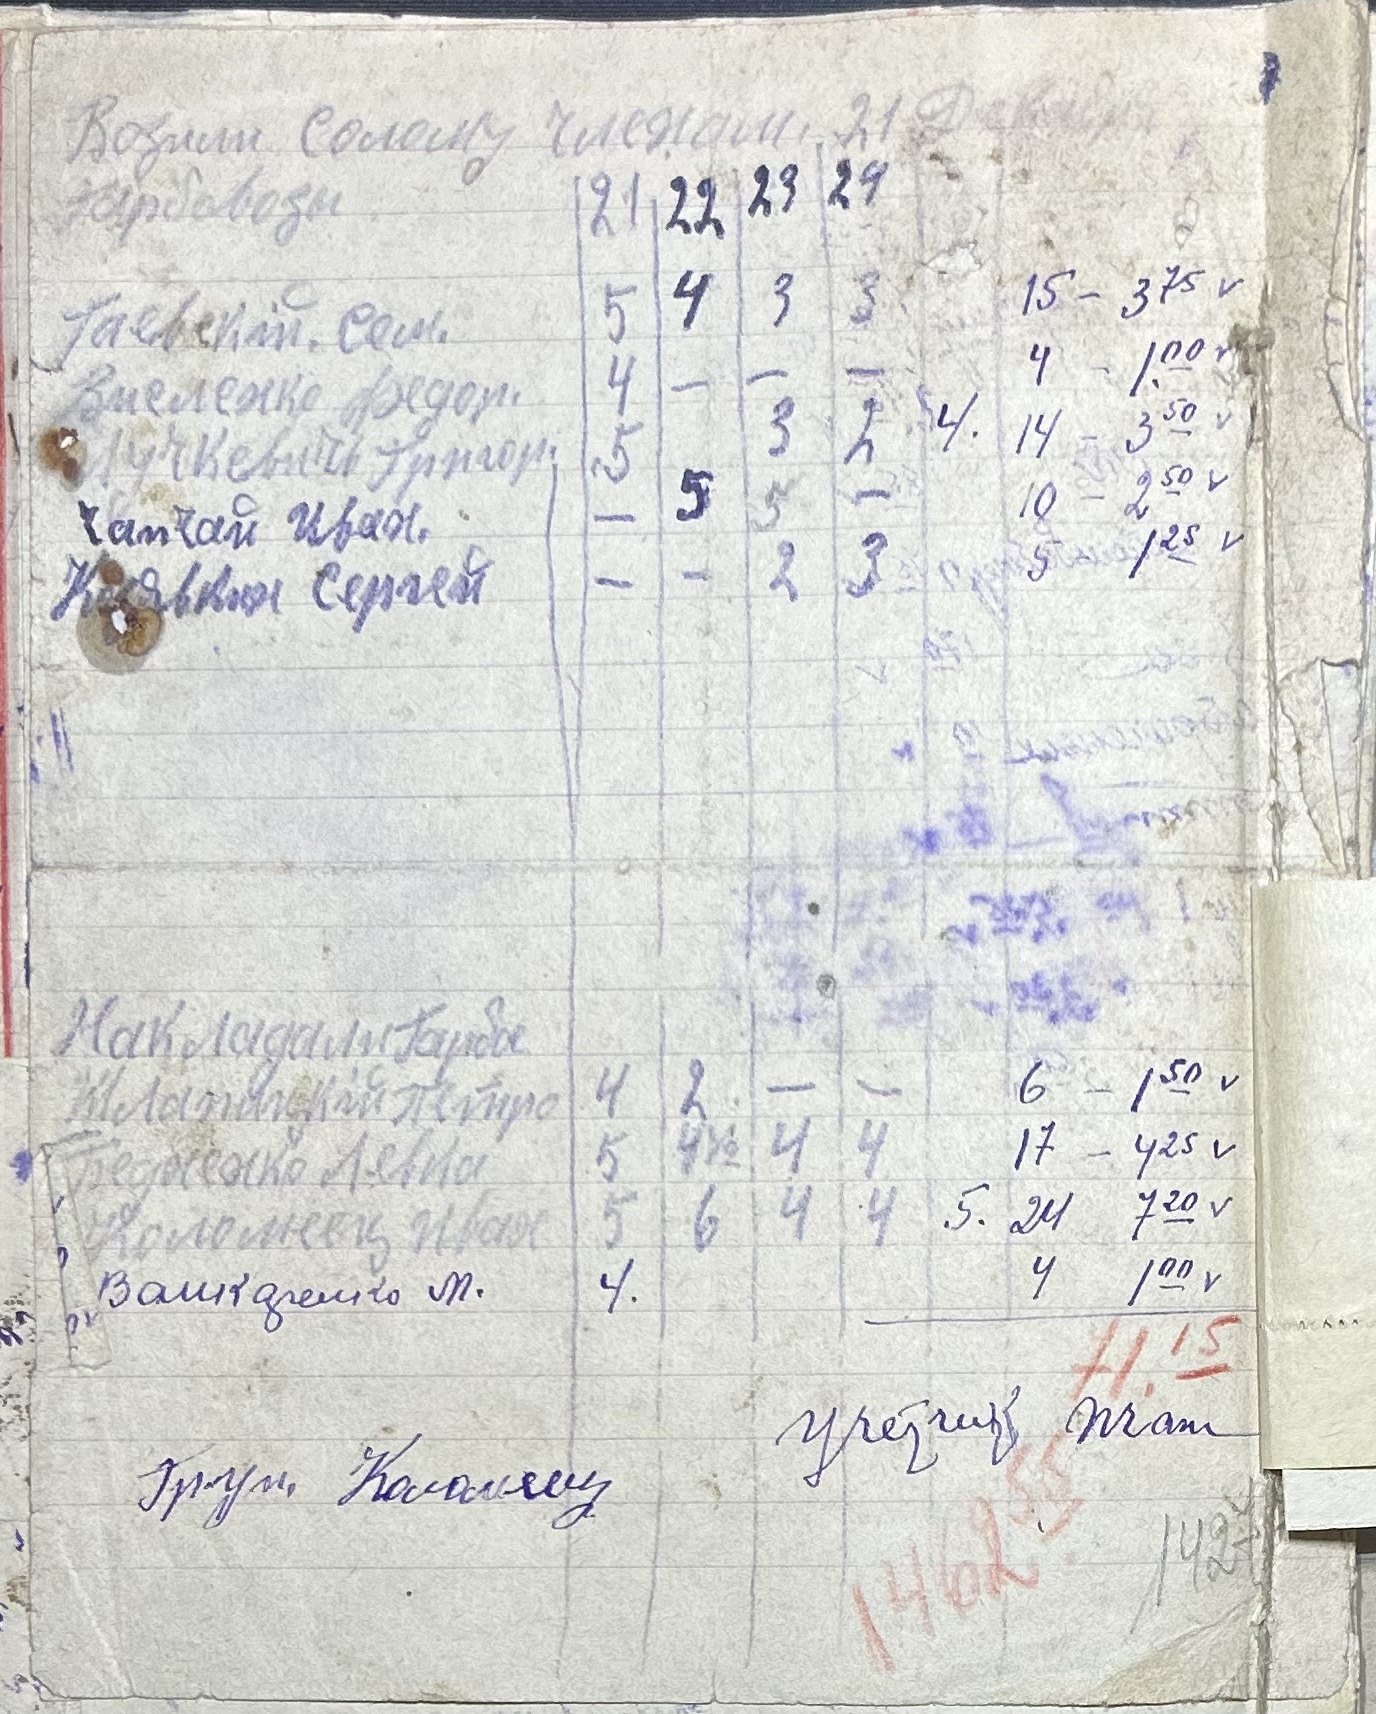 Возили Солому членам. 21 Декабря
Гарбовозы 21 22 23 24
Гаевский. Сем. 5 4 3 3 15 – 3 75 v
Федор. 4 — — — 4 – 1.00 v
Лучкевичь Григор. 5 3 2 4. 14 – 3 50 v
Чапчай Иван. — 5 5 — 10 – 2 50 v
Сергей — — 2 3 5 1 25 v
Накладали Гарбы
Петро 4 2 — — 6 – 1 50 v
5 4 1/2 4 4 17 – 4 25 v
Коломиец Иван 5 6 4 4 5. 24 7 20 v
М. 4. 4 1 00 v
15
Учетчик
Груп. Коломиец
1462 55
142